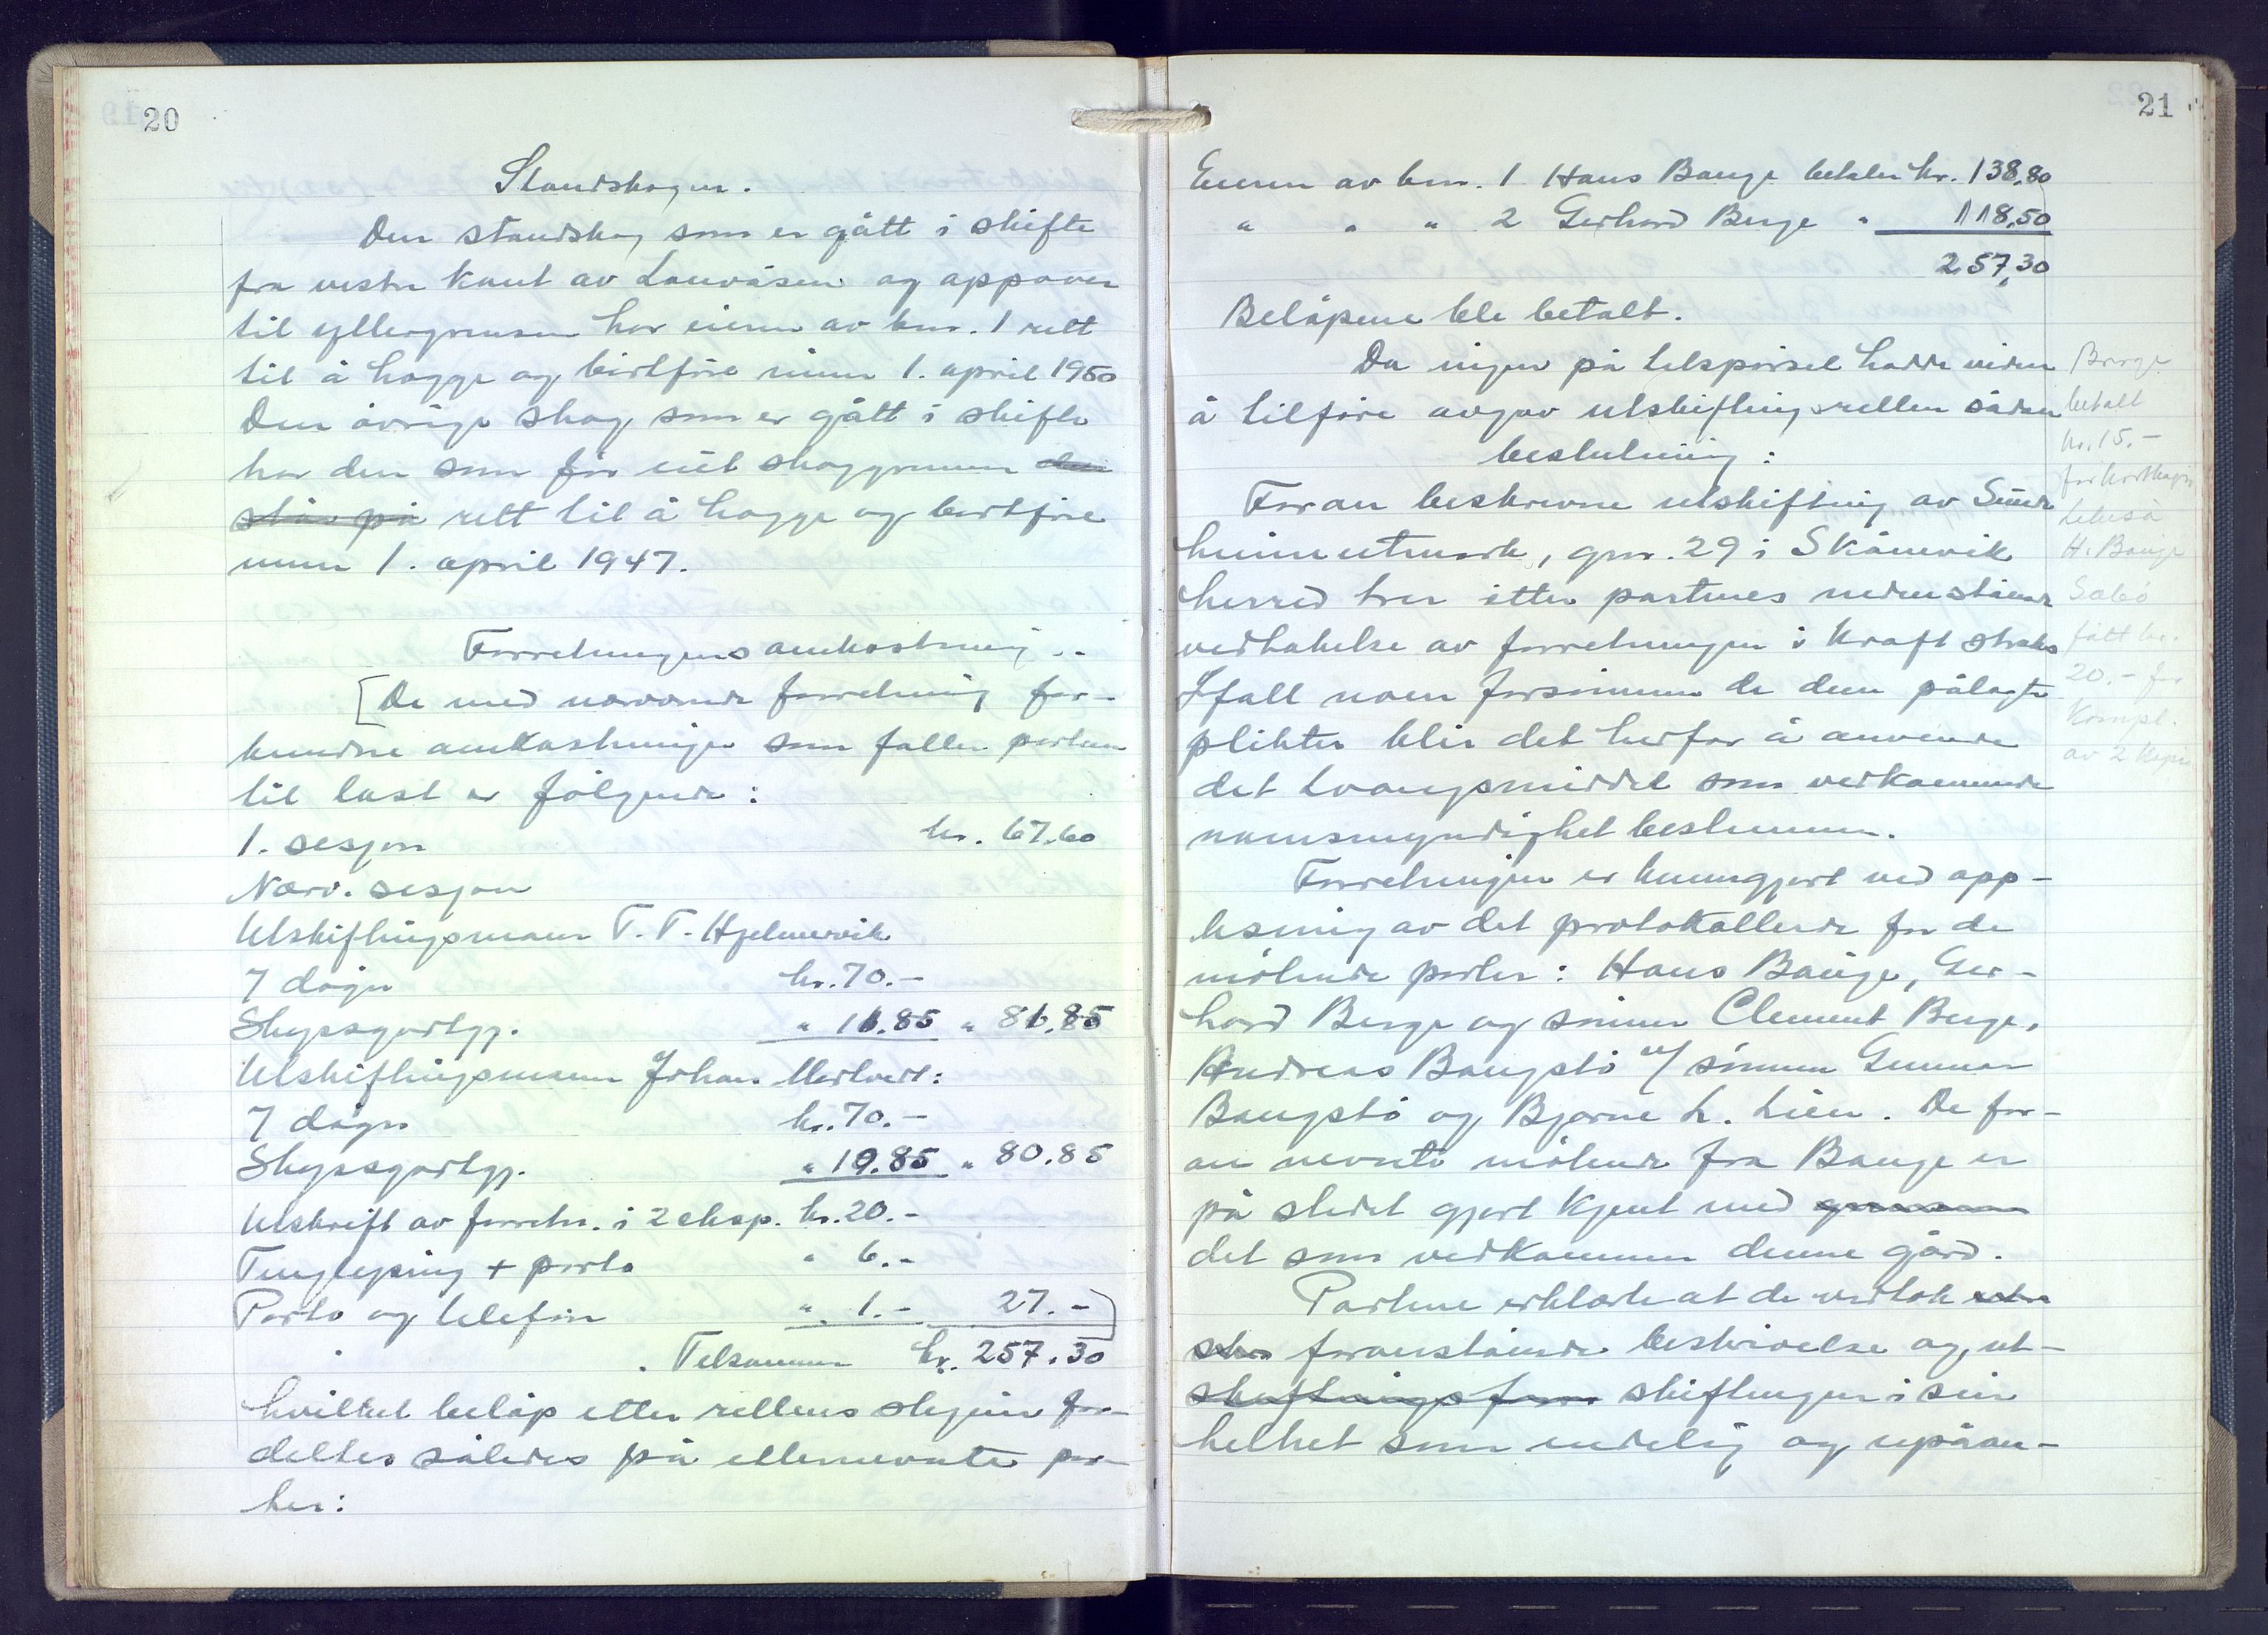 20
Standskogen.
Den standskog som er gått i skifte
fra vestre kant av Lauvåsen og oppover
til yttergrensen har eieren av bnr. 1 rett
til å hogge og bortføre innen 1. april 1950
Den øvrige skog som er gått i skifte
har den som før eiet skoggrunnen den
står på rett til å hogge og bortføre
innen 1. april 1947.
Forretningens omkostning..
[De med nærværende forretning for-
bundne omkostninger som faller partene
til last er følgende:
1. sesjon kr. 67.60
Nærv. sesjon
Utskiftningsmann T. T. Hjelmervik
7 dager kr. 70.-
Skyssgodtgj. " 11.85 " 81.85
Utskiftningsmann Johan Matland:
7 dager kr. 70.-
Skyssgodtgj. " 10.85 " 80.85
Utskrift av forretn. i 2 eksp. kr. 20.-
Tinglysing + porto " 6.-
Porto og telefon " 1.- 27.-]
Tilsammen kr. 257.30
hvilket beløp etter rettens skjønn for-
deltes således på etternevnte par-
ter:
21
Eieren av bnr. 1 Hans Bauge betaler kr. 138,80
" " " 2 Gerhard Berge " 118,50
257,30
Beløpene ble betalt.
Da ingen på tilspørsel hadde videre
å tilføre avgav utskiftningsretten sådan
beslutning:
Foran beskrevne utskiftning av
utmark, gnr. 29 i Skånevik
herred trer etter partenes nedenstående
vedtakelse av forretningen i kraft straks
Ifall noen forsømmer de dem pålagte
plikter blir det herfor å anvende
det tvangsmiddel som vedkommende
namsmyndighet bestemmer.
Forretningen er kunngjort ved opp-
lesning av det protokollerte for de
møtende parter: Hans Bauge, Ger-
hard Berge og sønnen Clement Berge,
Andreas Baugstø v/ sønnen Gunnar
Baugstø og Bjarne L. Lien. De for-
an nevnte møtende fra Bauge er
på stedet gjort kjent med grensene
det som vedkommer denne gård.
Partene erklærte at de vedtok
foranstående beskrivelse og ut-
skiftningsforr skiftningen i sin
helhet som endelig og upåan-
Berge
betalt
kr. 15.-
H. Bauge
Sæbø
fått kr.
20.- for
kompl.
av 2 kopier